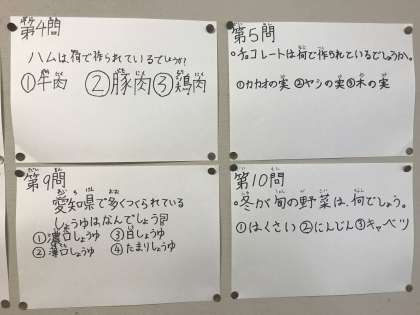 第4問
ハムは、何で作られているでしょうか?
①牛肉 ②豚肉 ③鶏肉
第5問
。チョコレートは何で作られているでしょうか。
①カカオの実 ②ヤシの実 ③木の実
第9問
愛知県で多くつくられている
しょうゆは、なんでしょう
①濃口しょうゆ ③白しょうゆ
②薄口しょうゆ ④たまりしょうゆ
第10問
。冬が旬の野菜は、何でしょう。
①はくさい ②にんじん ③キャベツ